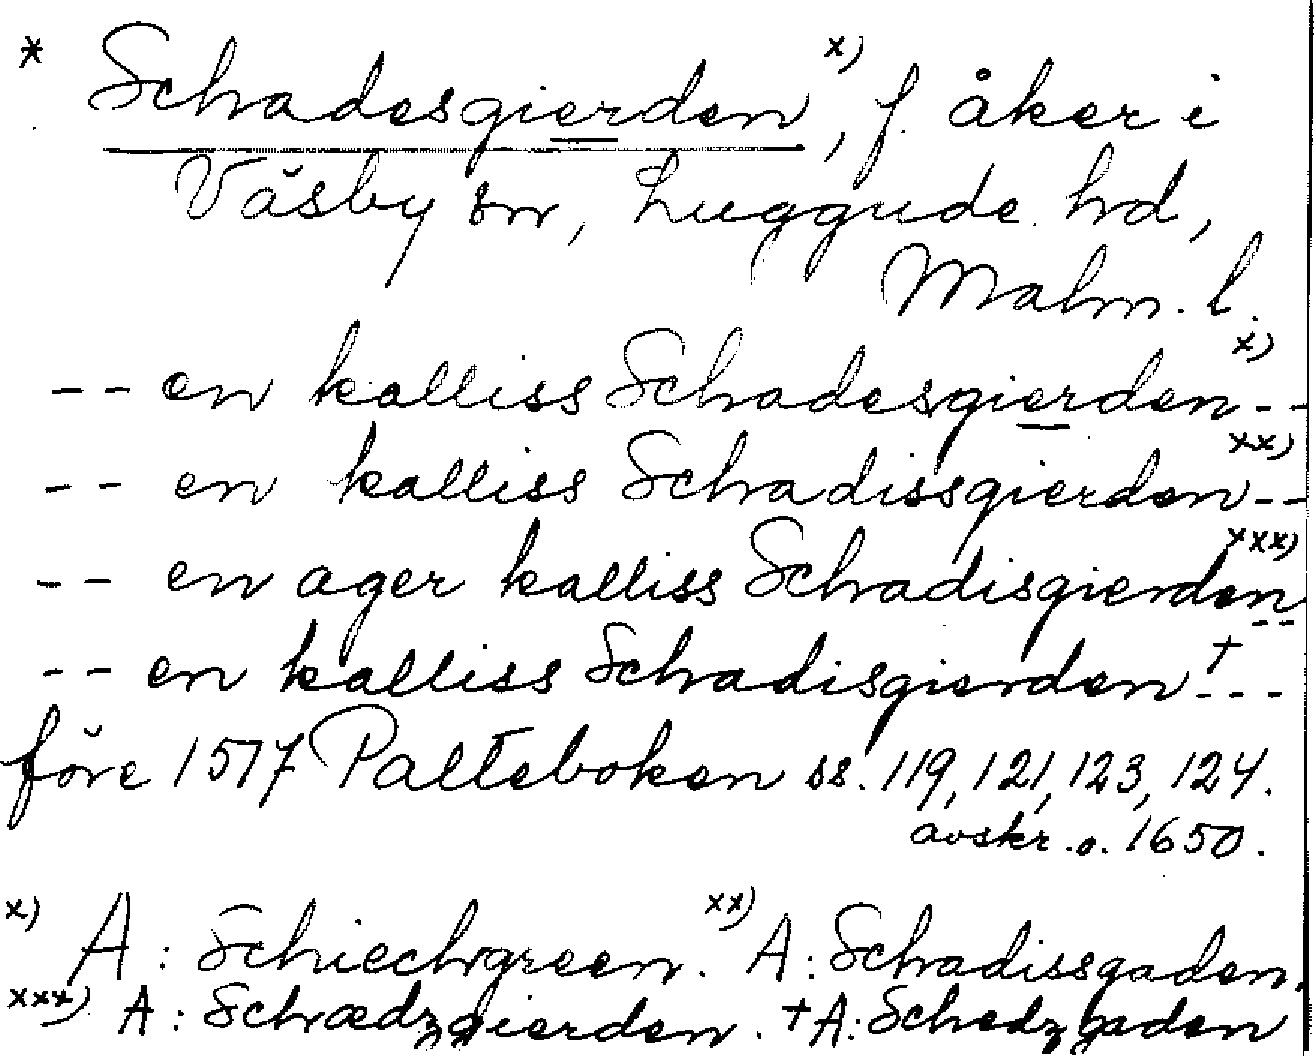 * Schadesgierden x), f. åker i
Väsby sn, Luggude hd,
Malm. l.
-- en kalliss Schadesgierden x) --
-- en kalliss Schadissgierden xx) --
-- en ager kalliss Schadisgierden xxx) --
-- en kalliss Schadisgierden † ---
före 1517 Palteboken ss. 119, 121, 123, 124.
avskr. o. 1650.
x) A: Schiechgreen. xx) A: Schadissgaden.
xxx) A: Schædzgierden. † A: Schedzgaden